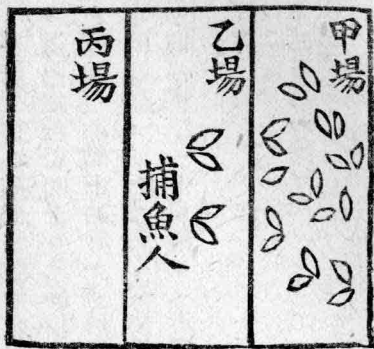 甲場
乙場
捕魚人
丙場